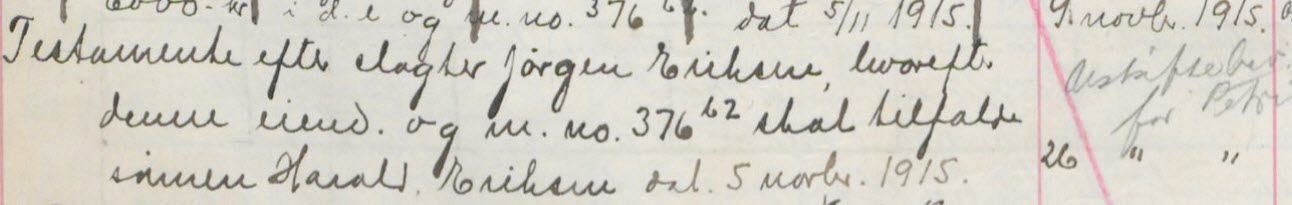 6000.- kr i d. e og m. no. 376 62. dat 5/11 1915. 9 novbr. 1915.
Testamente efter slagter Jörgen Eriksen, hvorefter
Uskiftebev.
denne eiend. og m. no. 376 62 skal tilfalde for Petri
sönnen Harald Eriksen dat. 5 novbr. 1915. 26 " "